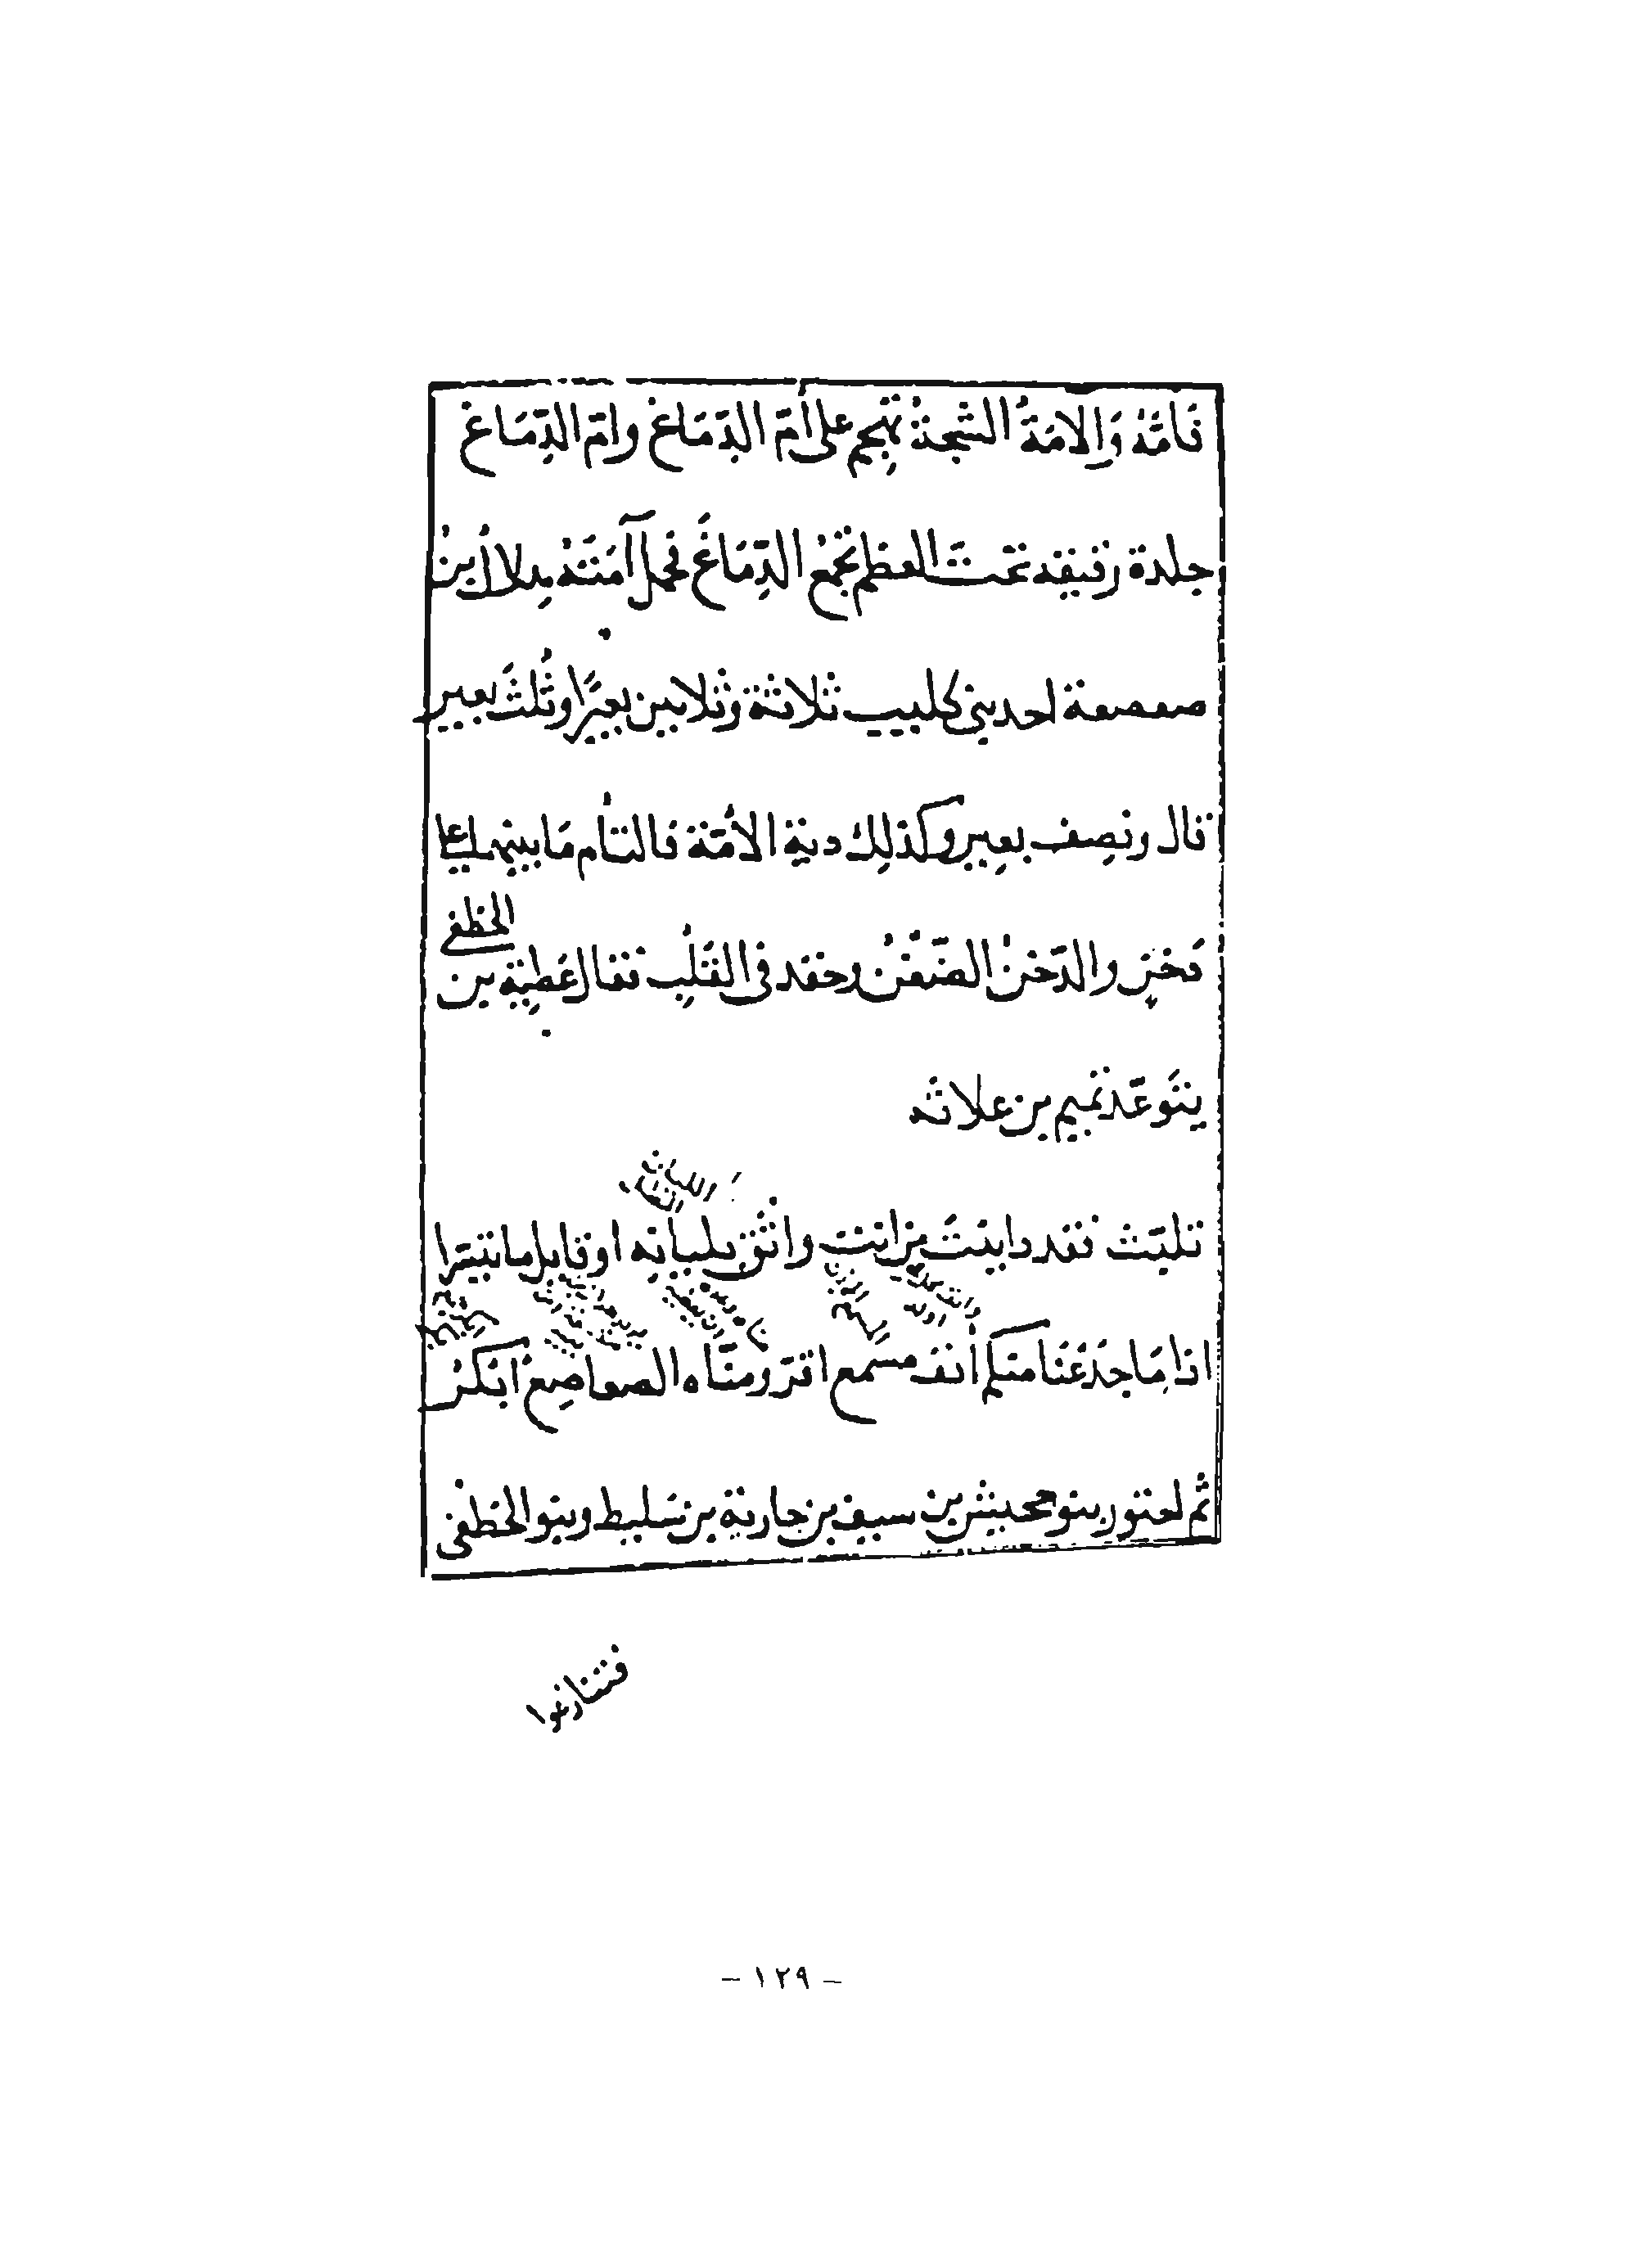 فَامَّهُ وَالامَةُ الشَّجةُ تهجم على أمّ الدِّمَاغ وامّ الدِّمَاغ
جلدة رقيقه تحتَ العظم تجمعُ الدِّمَاغَ فحمل آمَتَهُ هِلالُ بنُ
صعصعة احد بنى كليب ثلاثة وثلاثين بعيرًا وثُلثَ بعير
قال ونصِف بعير وكذلك دية الامّة فالتأم مَا بينهم على
دَخَنٍ والدَّخنُ الضّغْنُ وحقد فى القَلْب فقال عَطِيّة بن
الخطفى
يتَوعّد تميم بن علاثه
تلبّث فقد دايَنتَ من انت واثقٌ بلَيانه او قابل ما تيَسّرا
اذا مَا جدَعْنا منكم أنف مسمع اقرّ ومنّاه الصعاصِعُ ابكُرُ
ثم لعنو ر بنو جحيش بن سيف بن جارية بن سَليط وبنو الخطَفى
فتنازعوا
- ١٢٩ -